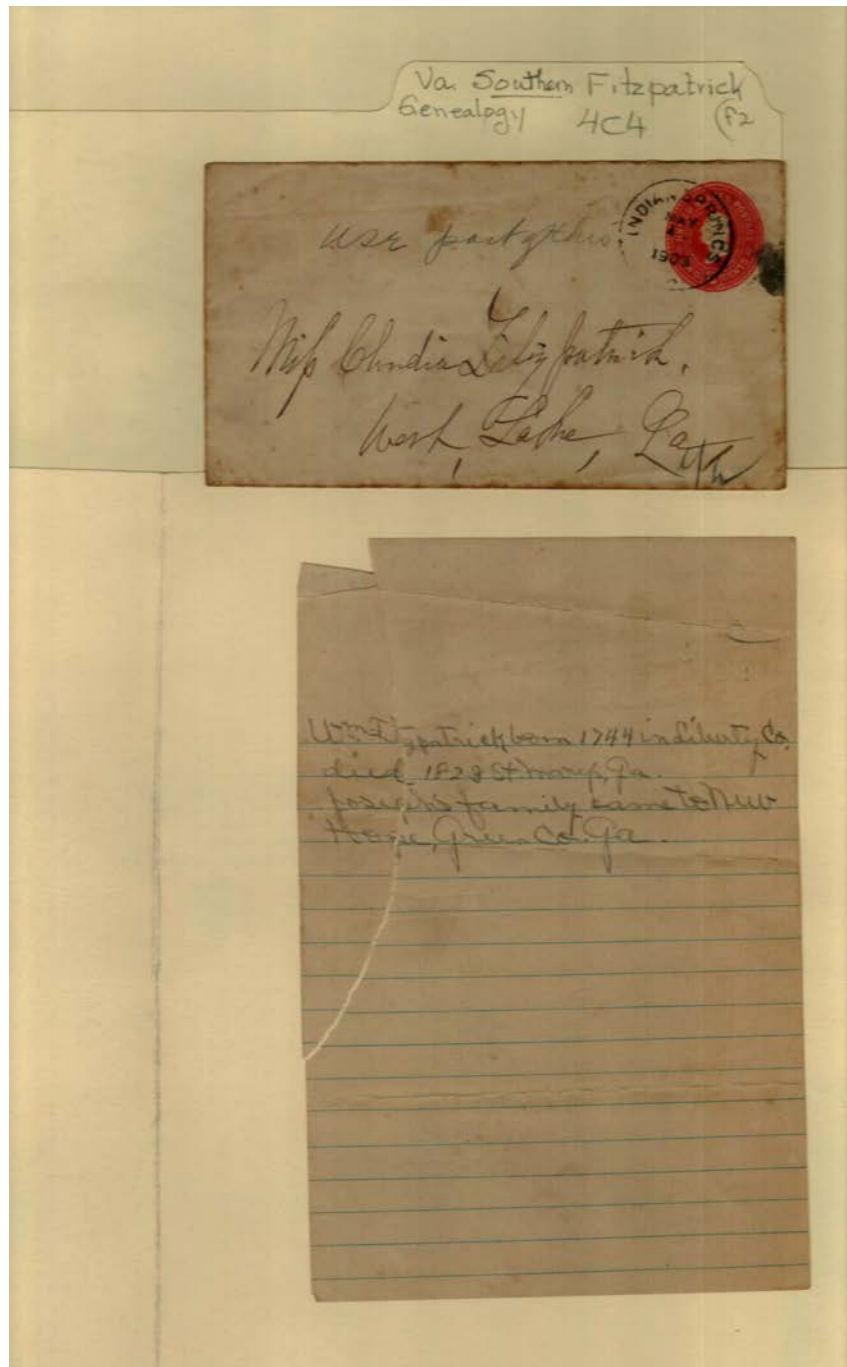 Va. Southern Fitzpatrick
Genealogy 4C4 (F2
use part of this
INDIAN SPRINGS
MAY
1905
Miss Claudia Fitzpatrick,
West Lake, Ga
Wm Fitzpatrick born 1744 in Liberty Co.
died 1828 St Marys, Ga.
Joseph's family came to New
Hope, Green Co. Ga.